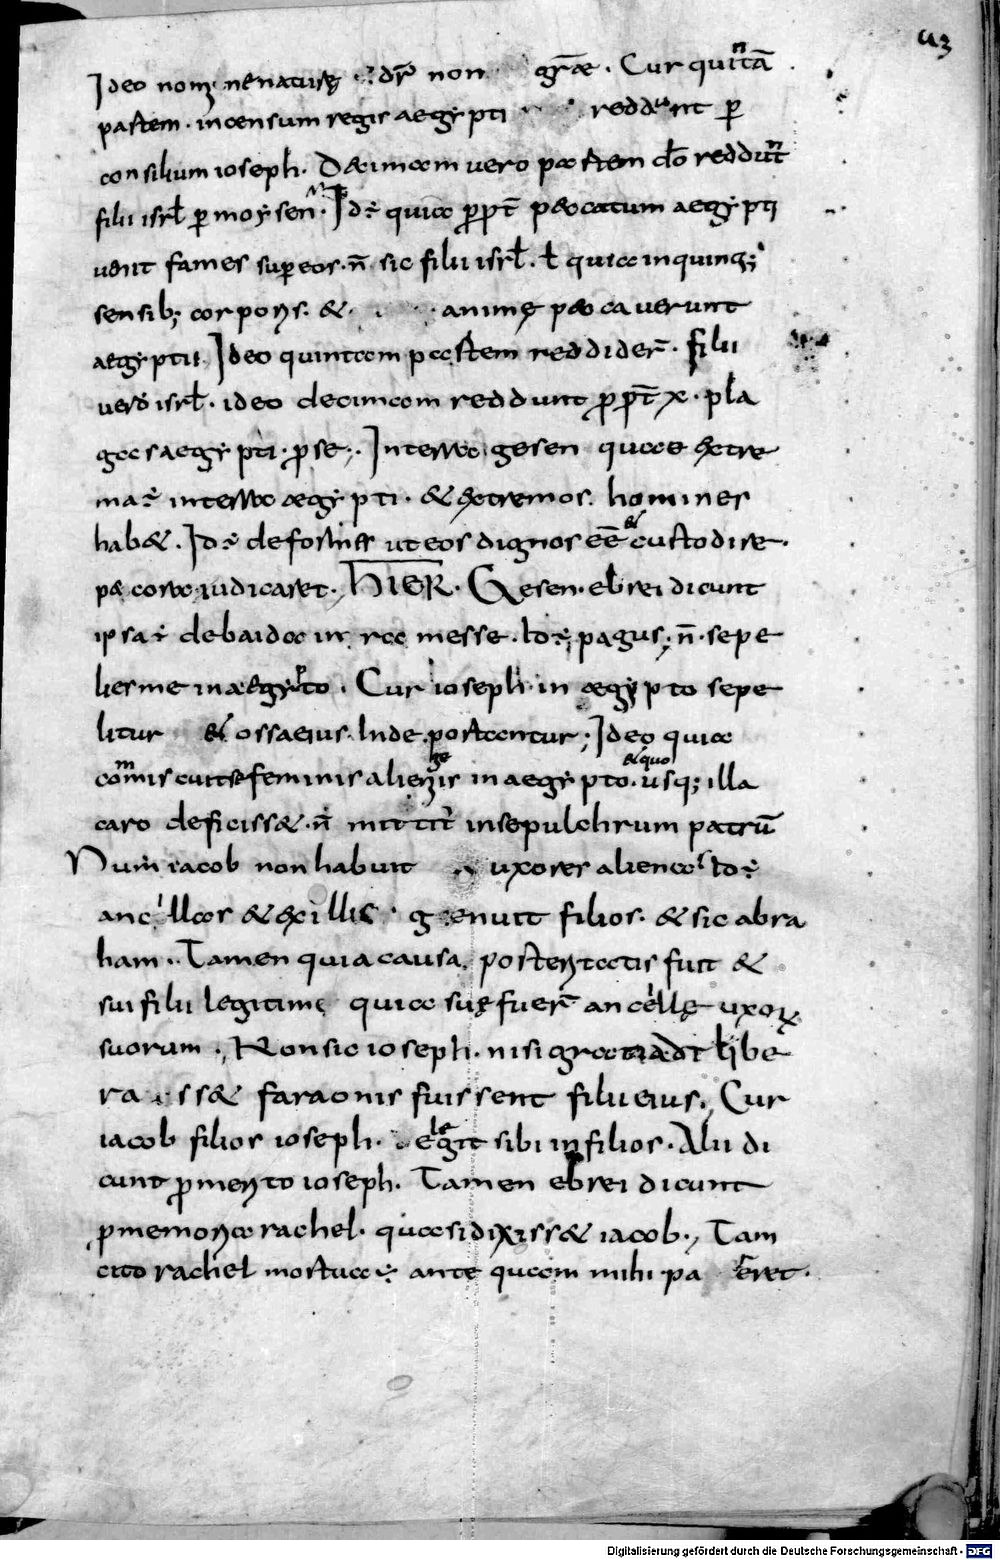 43
Ideo nomen naturę · dr̄ non grāe · Cur quintā
partem · in censum regis aegypti reddunt p̱
consilium ioseph · Decimam vero partem do̅ reddunt
filii isrl̄ p̱ moysen · Id÷ quia p̱pt̄ peccatum aegypti
venit fames super eos · n̄ sic filii isrl̄ · ł quia in quinq;
sensib; corporis · & · animę peccaverunt
aegyptii Ideo quintam partem reddider̄ · filii
vero isrl̄ · ideo decimam reddunt p̱pt̄ x · pla
gas aegypti · p̱ se ; Interra gesen quae extre
ma ÷ in terra aegypti · & extremos homines
hab& · Id÷ de fortiss ut eos dignos eē & custodire ·
pecora iudicaret · HIER · Gesen · ebrei dicunt
ipsa ÷ debaidoc in messe · Id÷ pagus ; n̄ · sepe
lies me in aegypto · Cur ioseph · in aegypto sepe
litur & ossa eius · Inde portantur ; Ideo quia
feminis alienigenis in aegypto · & quo usq; illa
caro deficiss& · n̄ mittit̄ in sepulchrum patrū
Num iacob non habuit uxores alienas Id÷
ancillas & ex illis · genuit filios · & sic abra
ham · Tamen quia causa posteritatis fuit &
sui filii legitimę quia suę fuer̄ ancellę uxorꝝ
suorum · Non sic ioseph · nisi libe
ra ss& faraonis fuissent filii eius · Cur
iacob filios ioseph · elegit sibi in filios · Alii di
cunt p̱ merito ioseph · Tamen ebrei dicunt
p̱ memoria rachel · quasi dixiss& iacob · Tam
cito rachel mortua ÷ ante quam mihi pareret ·
Digitalisierung gefördert durch die Deutsche Forschungsgemeinschaft - DFG